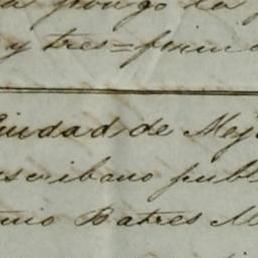 pongo la
y tres=firm
Ciudad de Mej
escribano publ
nio Batres M